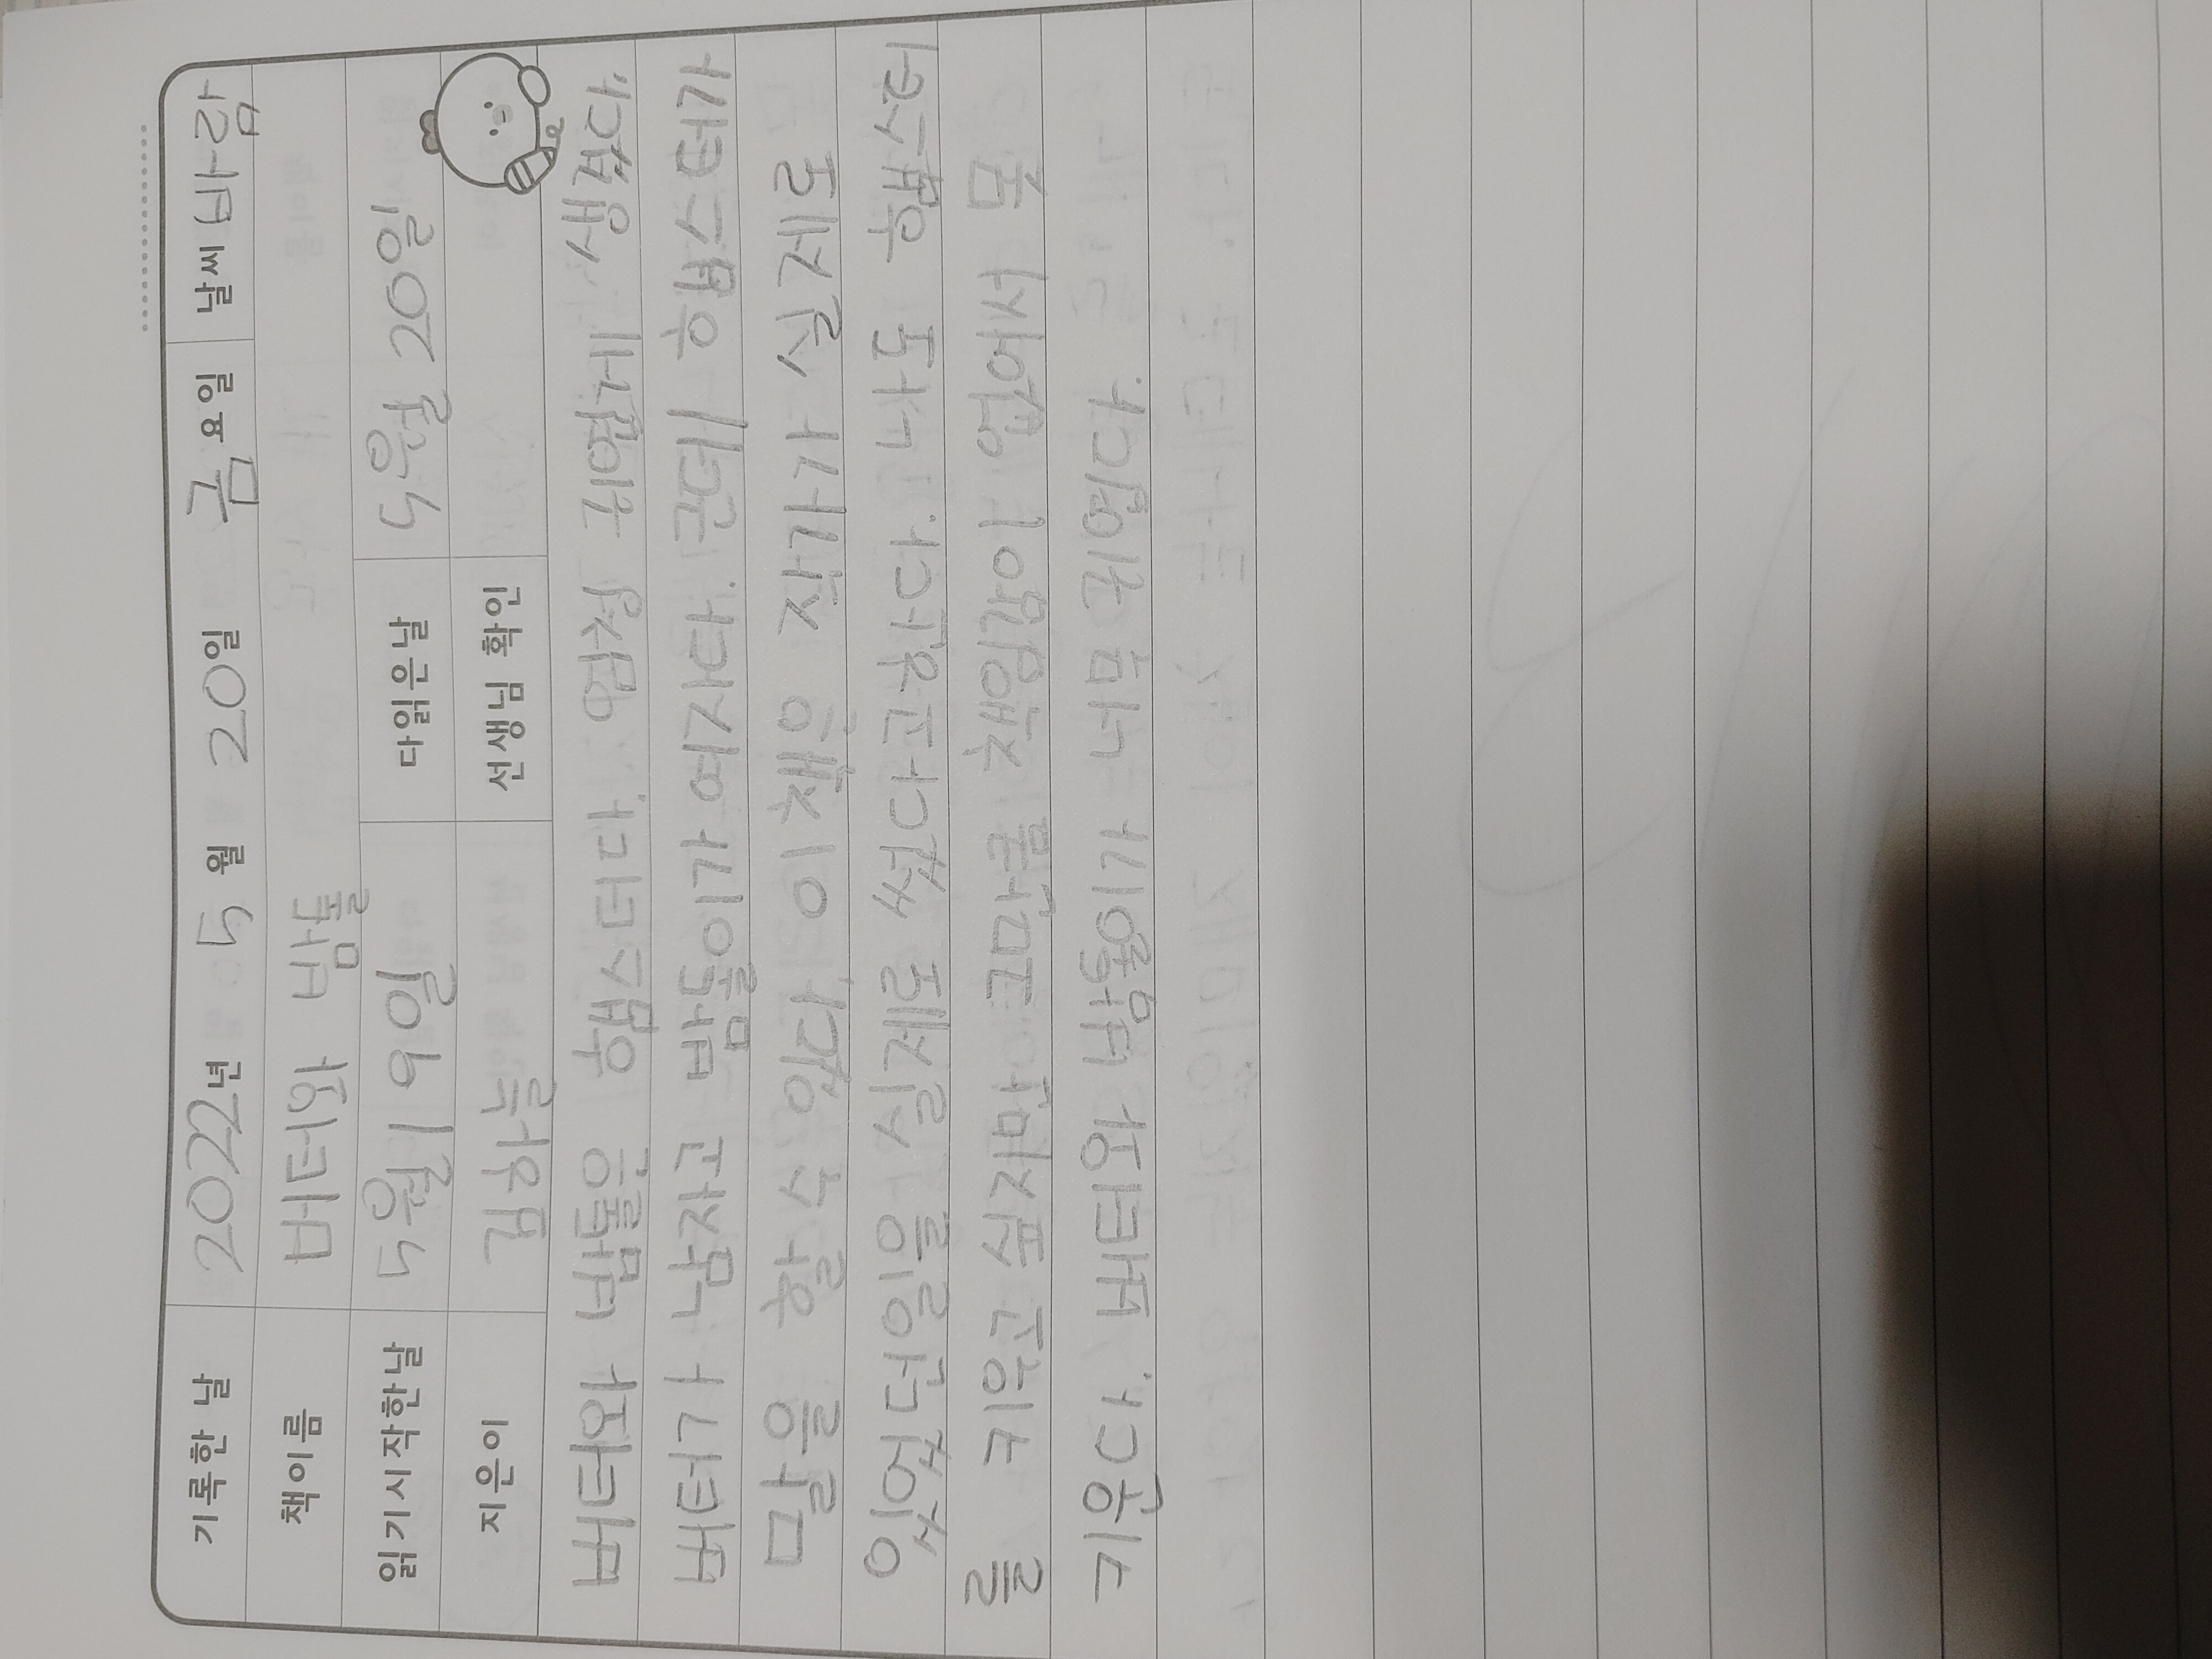 기록한 날 2022년 5월 20일 금요일 날씨 바람
책이름 버터와 밤톨
읽기시작한날 5월 19일 다읽은날 5월 20일
지은이 김하늘 선생님 확인
버터와 밤톨은 햄스터다. 엄청 귀엽게 생겼다.
버터가 남자고 밤톨이가 여자다. 근데 햄스터가
말을 할 수 있다. 이 책은 작가가 실제로
있었던일을 실제로 썼다고한다. 나도 햄스터
를 키우고 싶지만 그만큼 책임감이 없어서 못
키운다. 버터와 밤톨이가 너무 귀엽다.